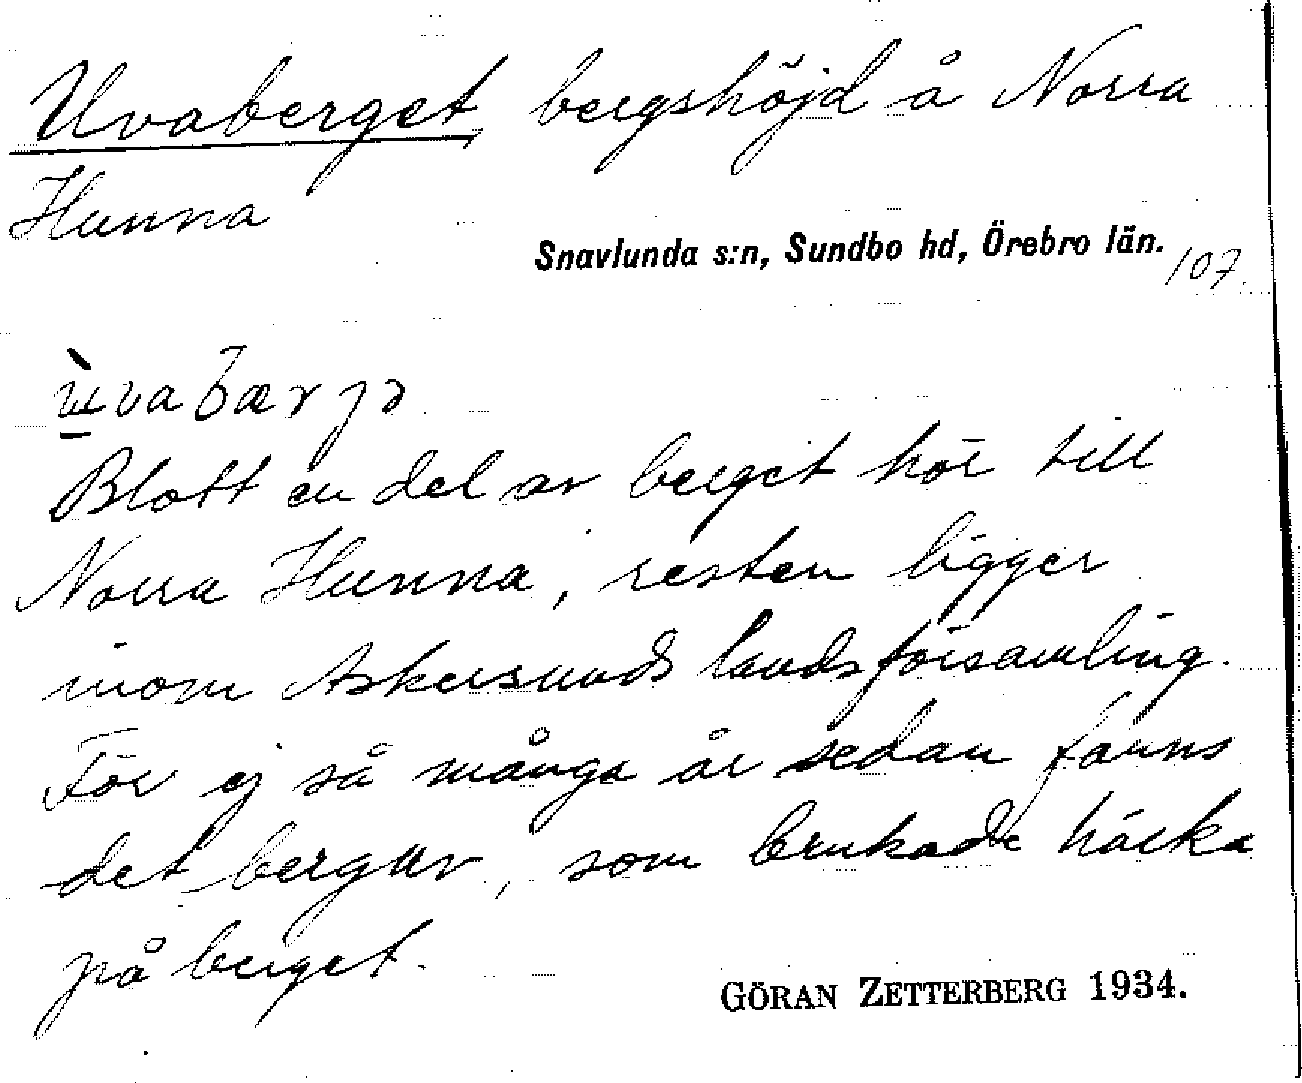 Uvaberget, bergshöjd å Norra
Hunna
Snavlunda s:n, Sundbo hd, Örebro län.
107.
Blott en del av berget hör till
Norra Hunna, resten ligger
inom Askersunds landsförsamling.
För ej så många år sedan fanns
det berguv, som brukade häcka
på berget.
GÖRAN ZETTERBERG 1934.